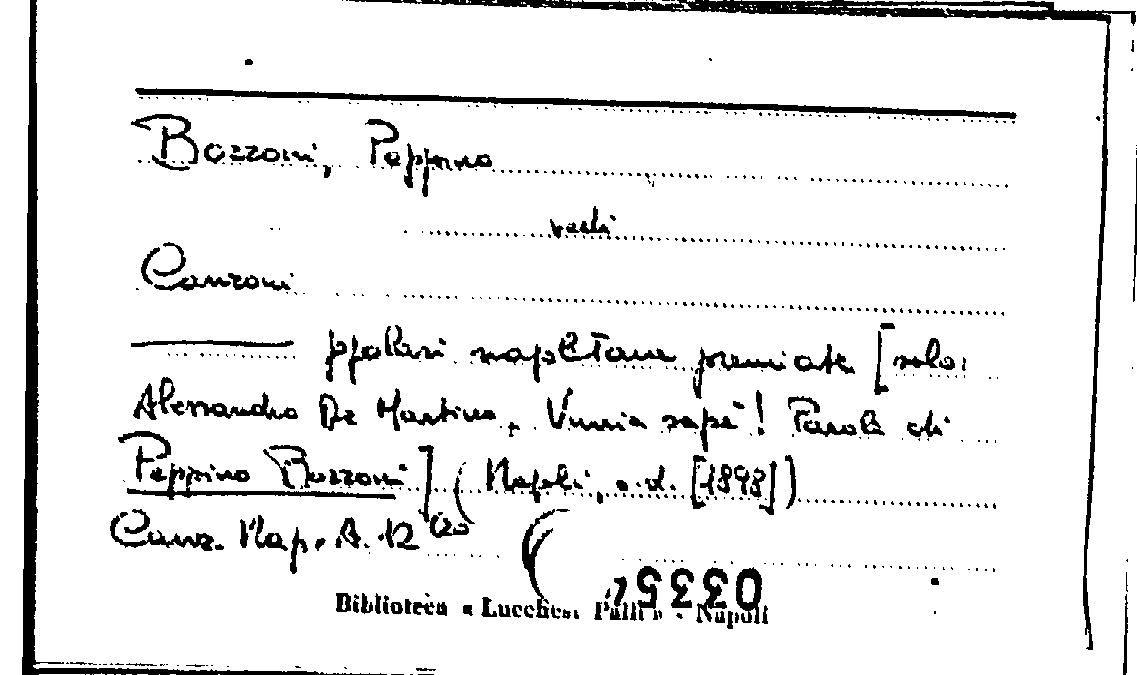 Bozzoni, Peppino
vedi
Canzoni
ppolari napoletane premiate [solo:
Alessandro De Martino, Vurria sapè! Parole di
Peppino Bozzoni] (Napoli, s.d. [1898])
Canz. Nap. A. 12 (20
03357
Biblioteca « Lucchesi Palli » - Napoli